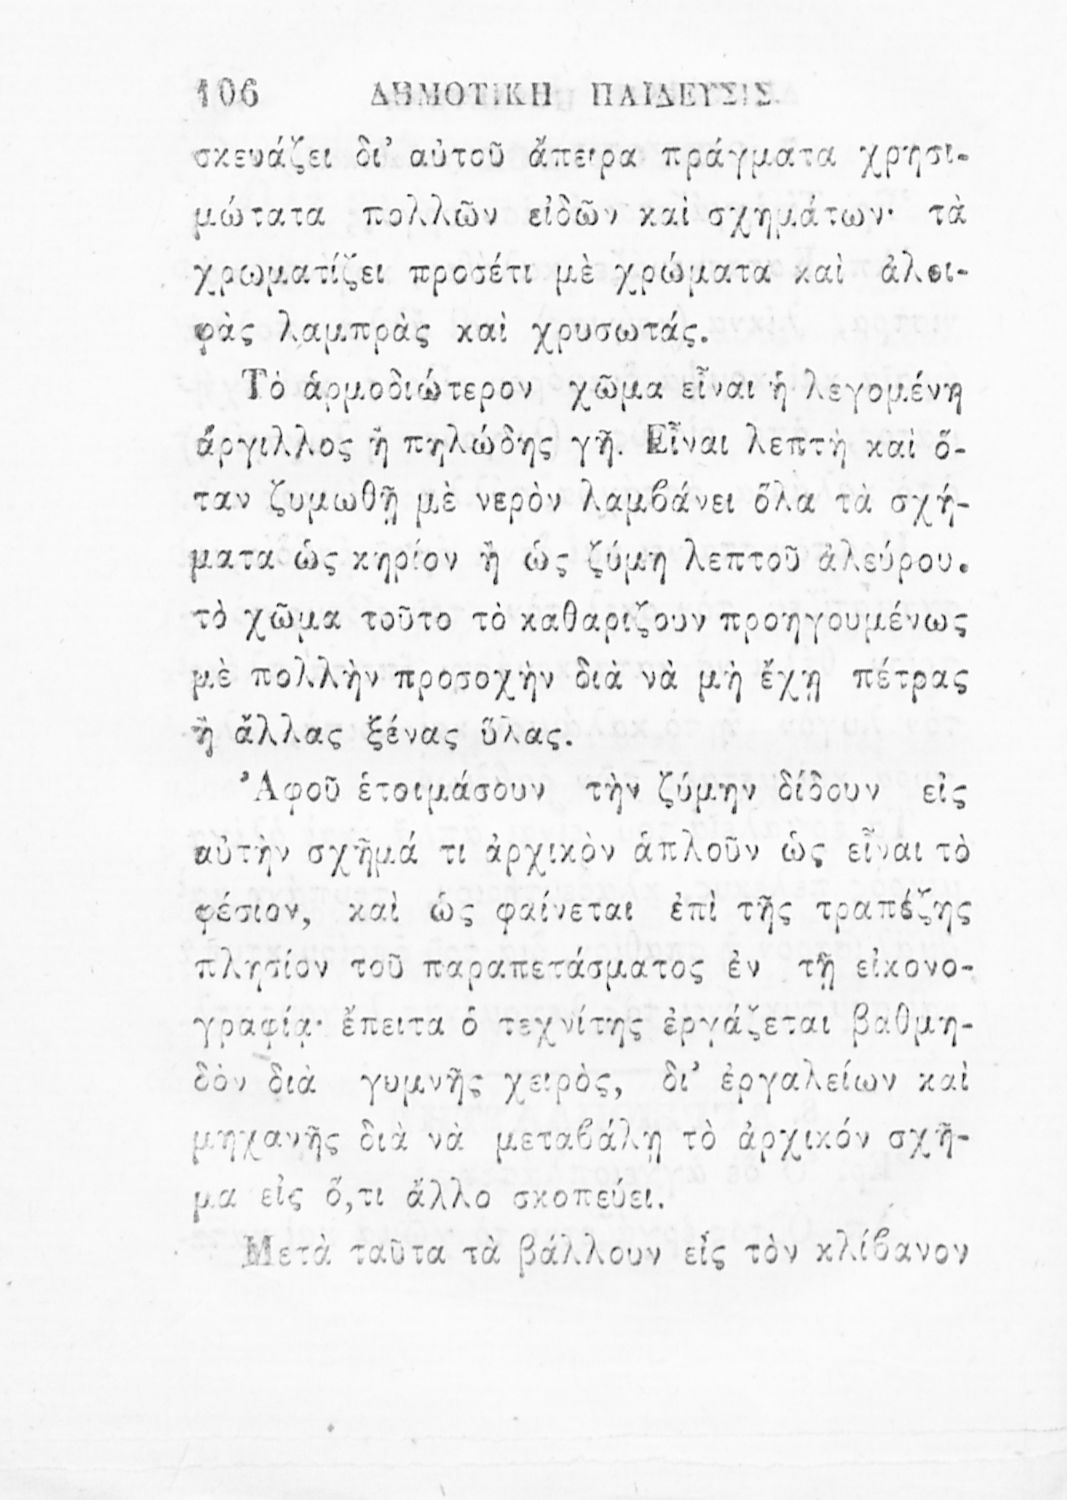 106 ΔΗΜΟΤΙΚΗ ΠΑΙΔΕΥΣΙΣ
σκευάζει δι' αὐτοῦ ἄπειρα πράγματα χρησι-
μώτατα πολλῶν εἰδῶν καὶ σχημάτων· τὰ
χρωματίζει προσέτι μὲ χρώματα καὶ ἀλοι-
φὰς λαμπρὰς καὶ χρυσωτάς.
Τὸ ἁρμοδιώτερον χῶμα εἶναι ἡ λεγομένη
ἄργιλλος ἢ πηλώδης γῆ. Εἶναι λεπτὴ καὶ ὅ-
ταν ζυμωθῇ μὲ νερὸν λαμβάνει ὅλα τὰ σχή-
ματα ὡς κηρίον ἢ ὡς ζύμη λεπτοῦ ἀλεύρου.
τὸ χῶμα τοῦτο τὸ καθαρίζουν προηγουμένως
μὲ πολλὴν προσοχὴν διὰ νὰ μὴ ἔχῃ πέτρας
ἢ ἄλλας ξένας ὕλας.
Ἀφοῦ ἑτοιμάσουν τὴν ζύμην δίδουν εἰς
αὐτὴν σχῆμά τι ἀρχικὸν ἁπλοῦν ὡς εἶναι τὸ
φέσιον, καὶ ὡς φαίνεται ἐπὶ τῆς τραπέζης
πλησίον τοῦ παραπετάσματος ἐν τῇ εἰκονο-
γραφίᾳ· ἔπειτα ὁ τεχνίτης ἐργάζεται βαθμη-
δὸν διὰ γυμνῆς χειρὸς, δι' ἐργαλείων καὶ
μηχανῆς διὰ νὰ μεταβάλῃ τὸ ἀρχικόν σχῆ-
μα εἰς ὅ,τι ἄλλο σκοπεύει.
Μετὰ ταῦτα τὰ βάλλουν εἰς τὸν κλίβανον